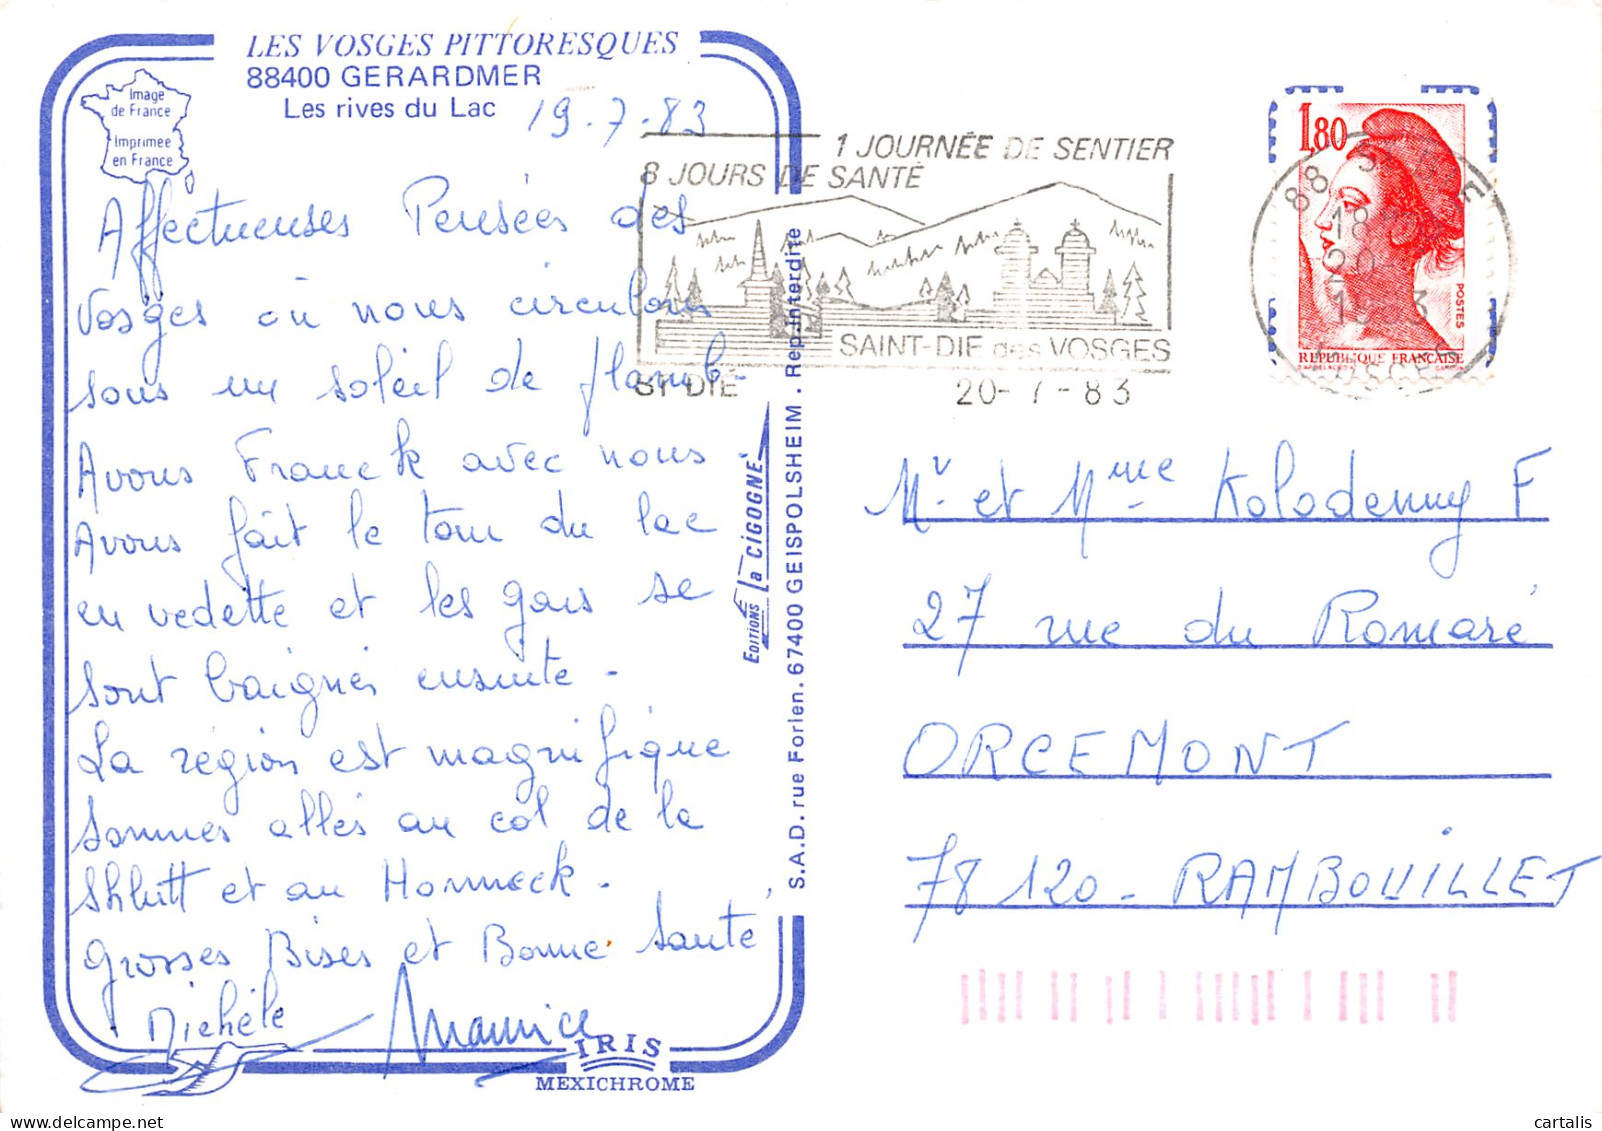 LES VOSGES PITTORESQUES
88400 GERARDMER
Les rives du Lac
Image
de France
Imprimée
en France
19.7.83
Affectueuses Pensées des
Vosges où nous circulons
sous un soleil de flamb.
Avons Franck avec nous.
Avons fait le tour du lac
en vedette et les gars se
sont baignés ensuite.
La région est magnifique
Sommes allés au col de la
Shlutt et au Honneck.
Grosses Bises et Bonne Santé
Michèle
Maurice
IRIS
MEXICHROME
EDITIONS La CIGOGNE
S.A.D. rue Forlen. 67400 GEISPOLSHEIM. Rep. Interdite
1 JOURNÉE DE SENTIER
8 JOURS DE SANTÉ
SAINT-DIE des VOSGES
ST DIÉ
20-7-83
1,80
POSTES
REPUBLIQUE FRANÇAISE
88 ST DIE
18H
20
1983
VOSGES
Mr et Mme Kolodenny F
27 rue du Romaré
ORCEMONT
78120 - RAMBOUILLET
cartalis
delcampe.net